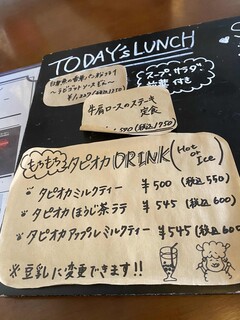 TODAY'S LUNCH
スープ、サラダ
牛肩ロースのステーキ
定食
もちもちタピオカ DRINK (Hot or Ice)
* タピオカミルクティー ¥500 (税込550)
* タピオカほうじ茶ラテ ¥545 (税込600)
* タピオカアップルミルクティー ¥545 (税込600)
※豆乳に変更できます!!